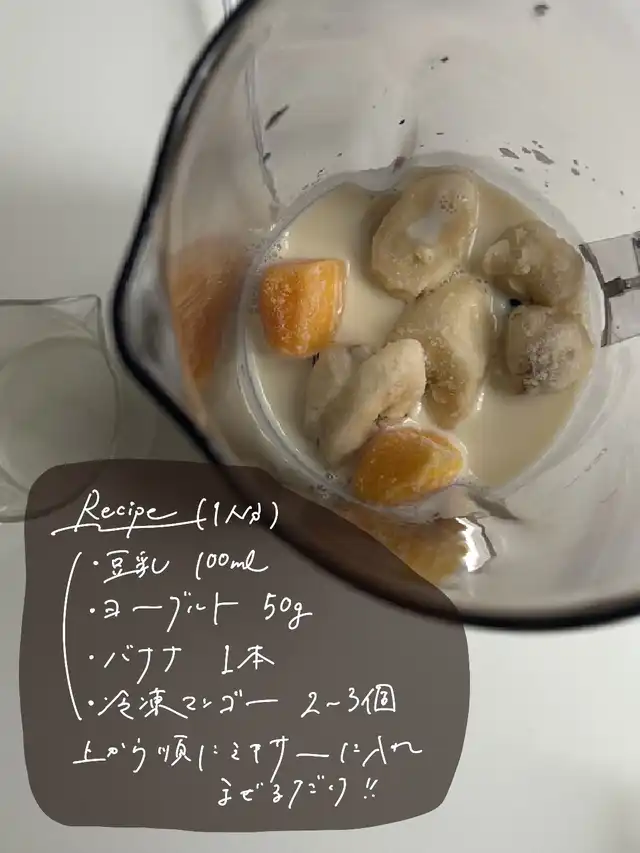 Recipe (1人分)
・豆乳 100ml
・ヨーグルト 50g
・バナナ 1本
・冷凍マンゴー 2~3個
上から順にミキサーに入れ
まぜるだけ!!